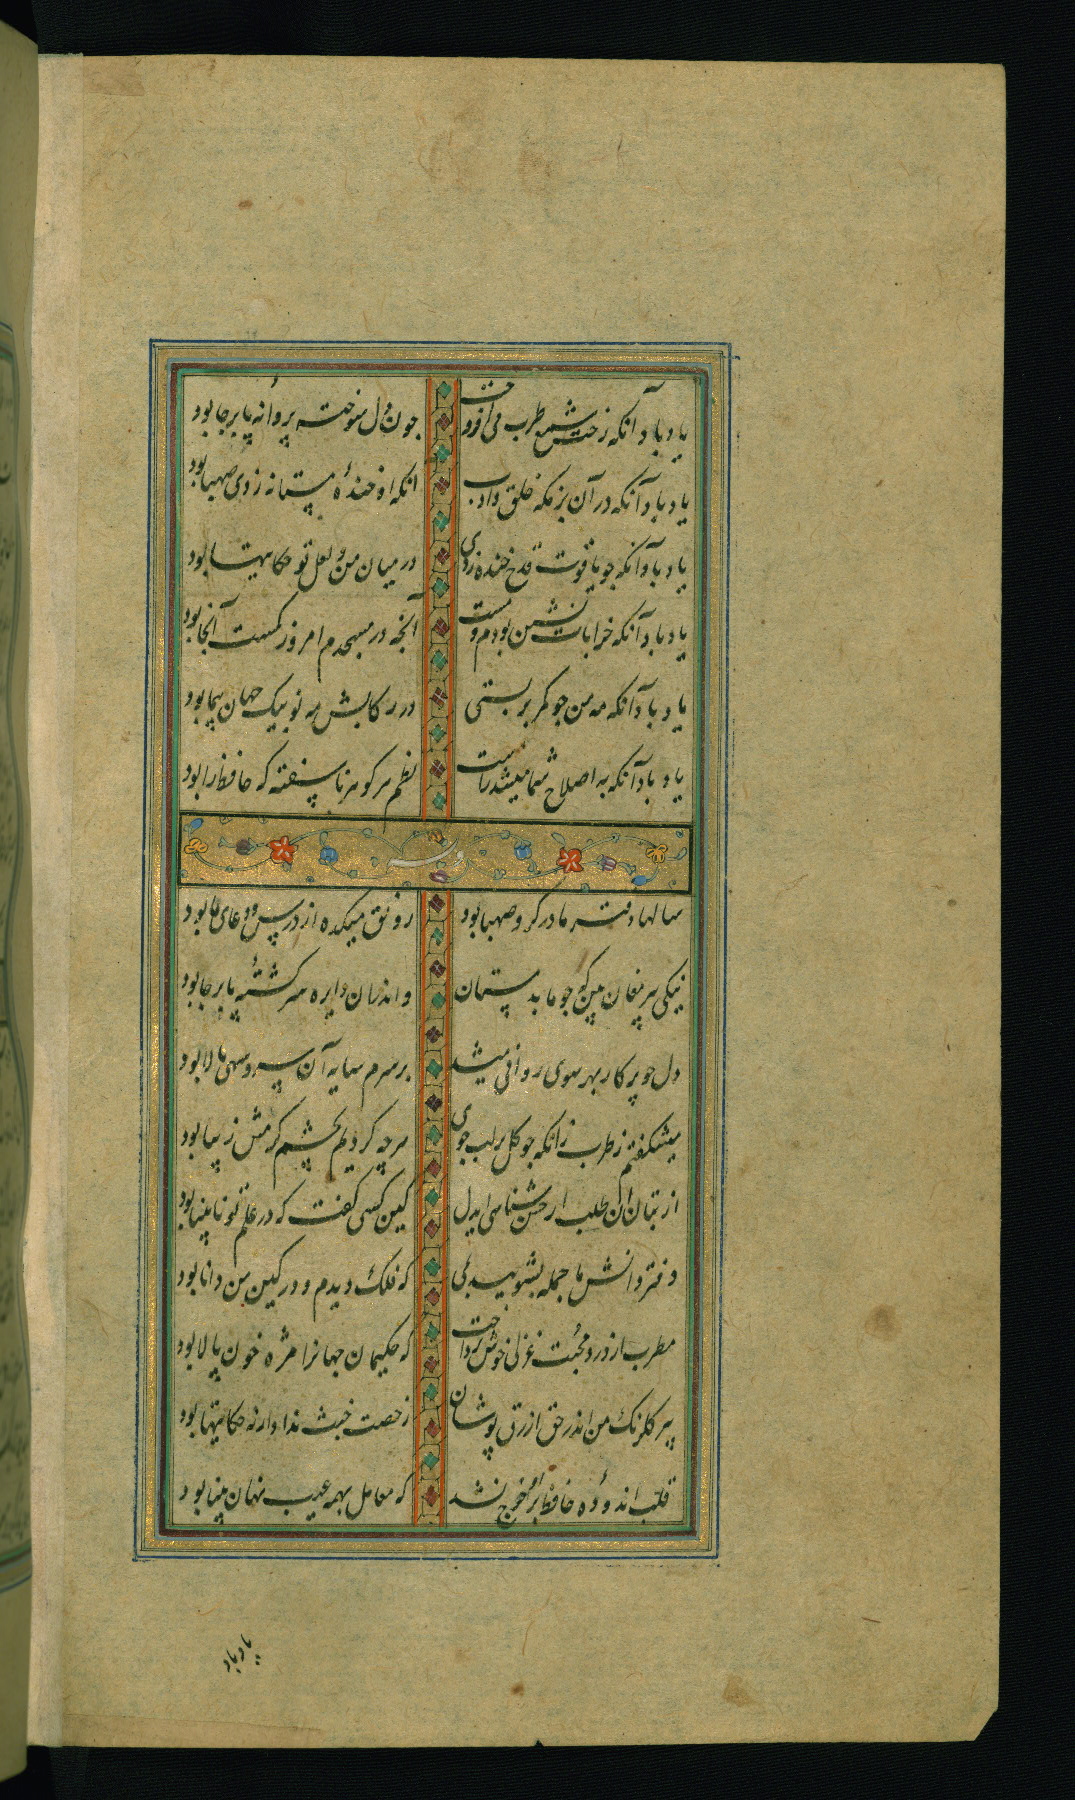 یاد باد آنکه رخت شمع طرب می افروخت جون دل سوخته پروانهٔ پابرجا بود
یاد باد آنکه در آن بزمکه خلق و ادب انکه او خندهٔ مستانه زدی صهبا بود
یاد باد آنکه جو یاقوت قدح خنده زدی در میان من و لعل تو حکایتها بود
یاد باد آنکه خرابات نشین بودم و مست آنجه در مسجدم امروز کمست آنجا بود
یاد باد آنکه مه من جو کمر بر بستی در رکابش مه نو پیک جهان پیما بود
یاد باد آنکه به اصلاح شما میشد راست نظم هر کوهر ناسفته که حافظ را بود
وله
سالها دفتر ما در کرو صهبا بود رونق میکده از درس و دعای ما بود
نیکی پیر مغان بین که جو ما بدمستان و اندران دایره سرکشتهٔ پابرجا بود
دل جو پرکار بهر سوی روانی میشد بر سرم سایهٔ آن سرو سهی بالا بود
میشکفتم ز طرب زانکه جو کل بر لب جوی هرچه کردیم بچشم کرمش زیبا بود
از بتان آن طلب ار حسن شناسی ایدل کین کسی کفت که در علم تو نابینا بود
دفتر دانش ما جمله بشویید بمی که فلک دیدم و در کین من دانا بود
مطرب از درد محبت غزلی خوش پرداخت که حکیمان جهانرا مژه خون پالا بود
پیر کلرنک من اندر حق ازرق پوشان رخصت خبث نداد ار نه حکایتها بود
قلب اندودهٔ حافظ بر او خرج نشد که معامل بهمه عیب نهان بینا بود
یاد باد